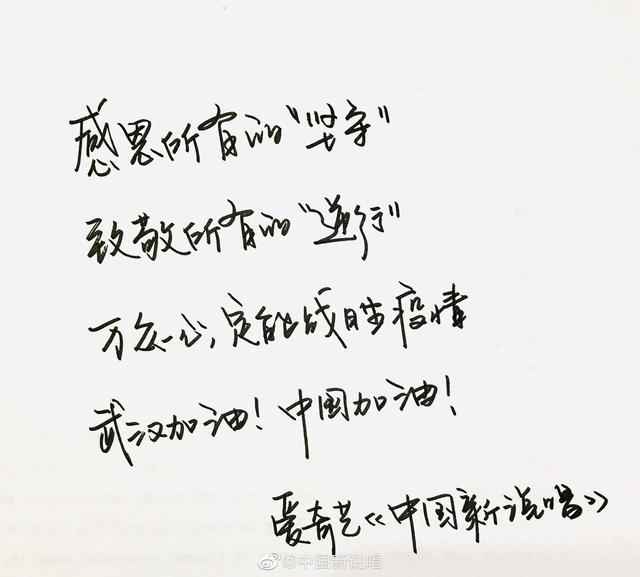 感恩所有的“坚守”
致敬所有的“逆行”
万众一心，定能战胜疫情
武汉加油！中国加油！
爱奇艺《中国新说唱》
@中国新说唱